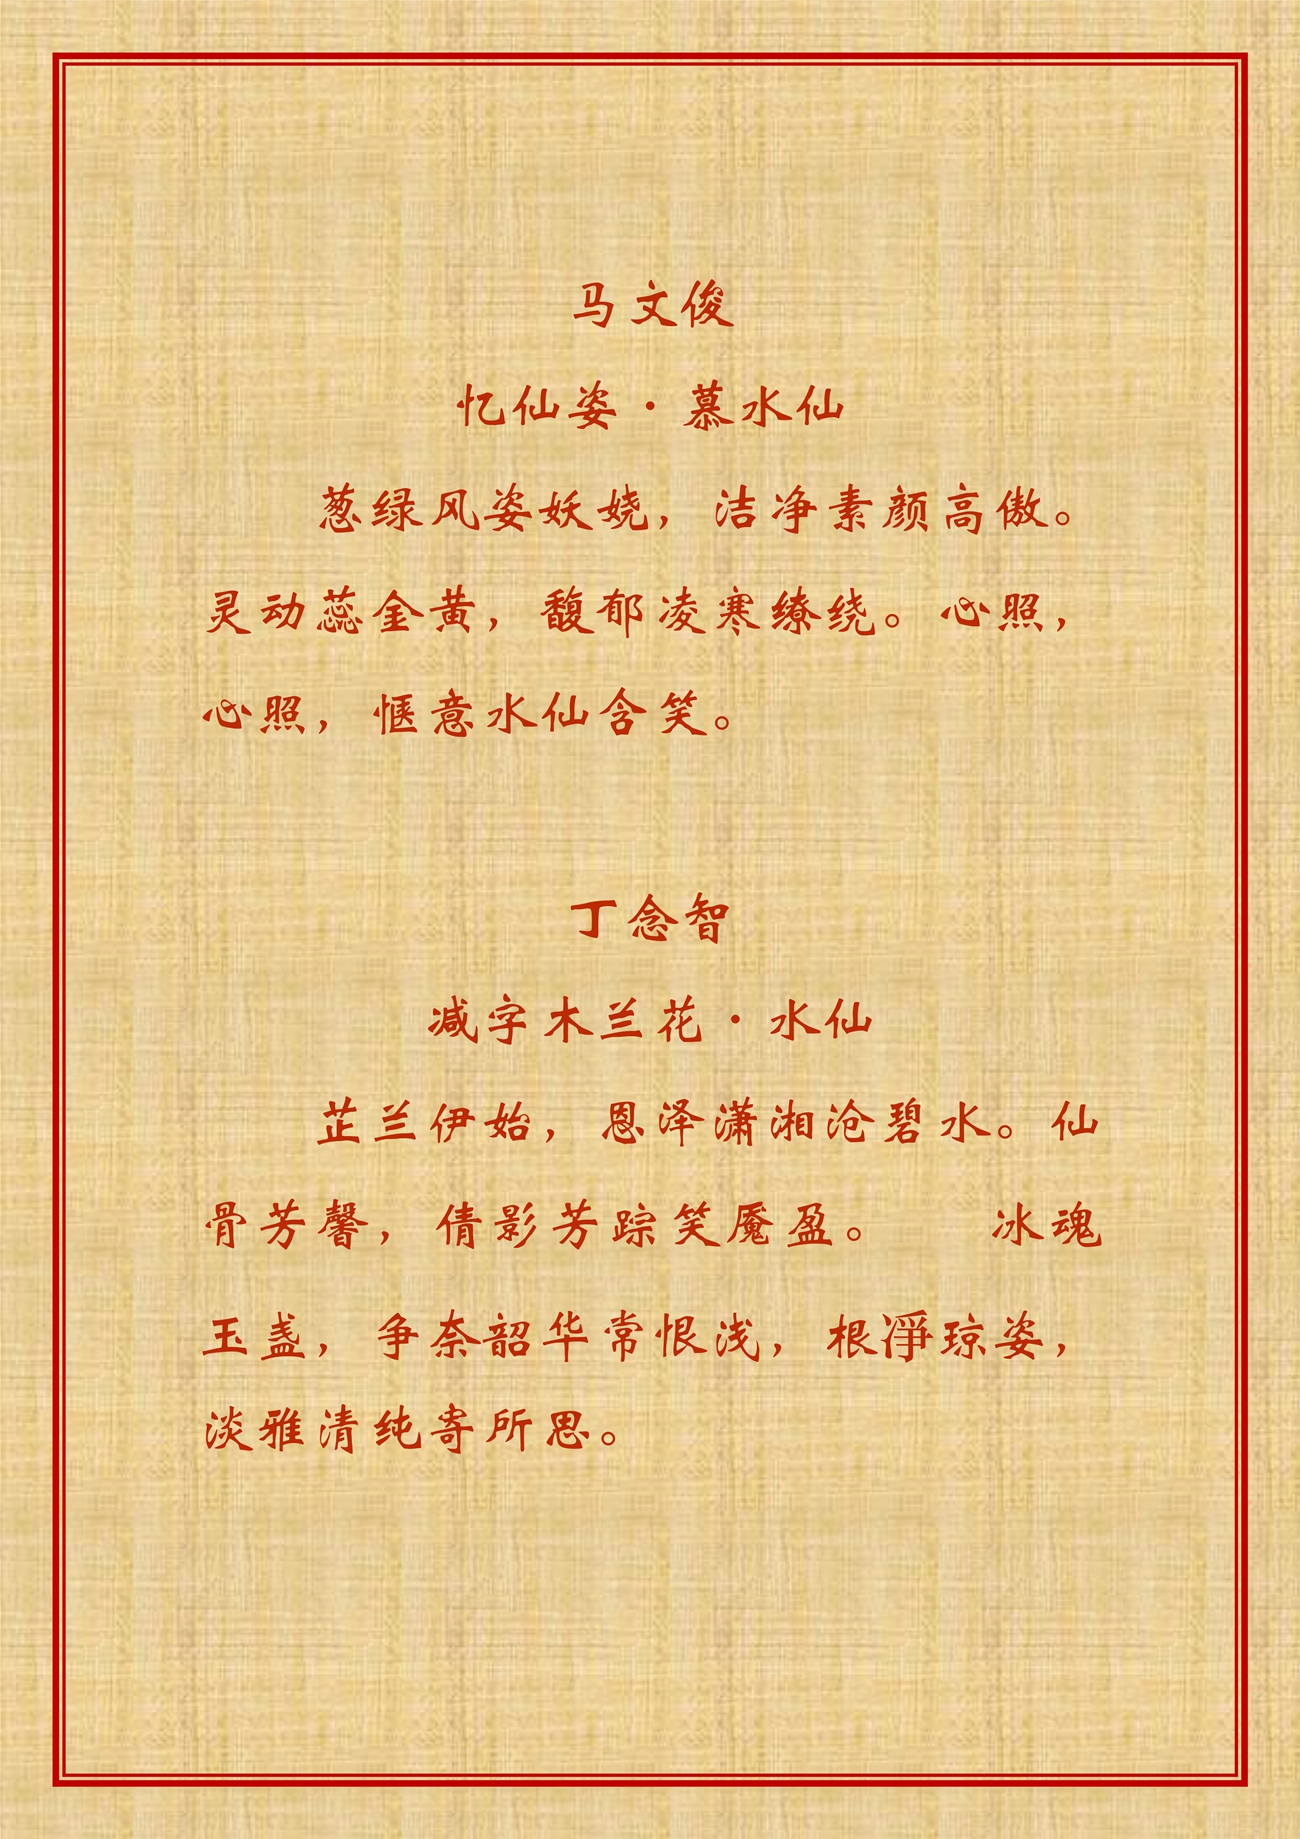 马文俊
忆仙姿·慕水仙
葱绿风姿妖娆，洁净素颜高傲。
灵动蕊金黄，馥郁凌寒缭绕。心照，
心照，惬意水仙含笑。
丁念智
减字木兰花·水仙
芷兰伊始，恩泽潇湘沧碧水。仙
骨芳馨，倩影芳踪笑靥盈。　　冰魂
玉盏，争奈韶华常恨浅，根凈琼姿，
淡雅清纯寄所思。